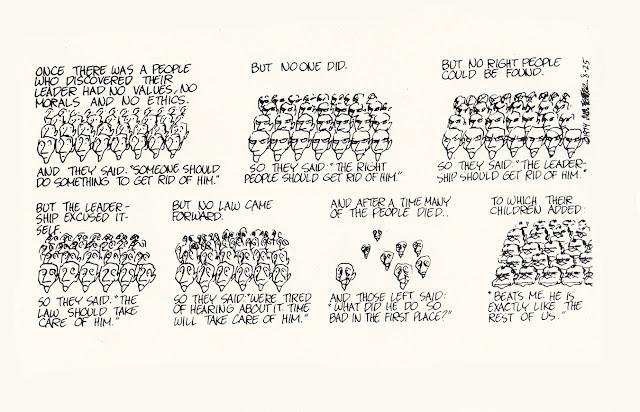 ONCE THERE WAS A PEOPLE
WHO DISCOVERED THEIR
LEADER HAD NO VALUES, NO
MORALS AND NO ETHICS.
AND THEY SAID: "SOMEONE SHOULD
DO SOMETHING TO GET RID OF HIM."
BUT NO ONE DID.
SO THEY SAID: "THE RIGHT
PEOPLE SHOULD GET RID OF HIM."
BUT NO RIGHT PEOPLE
COULD BE FOUND.
SO THEY SAID: "THE LEADER-
SHIP SHOULD GET RID OF HIM."
8-25
BUT THE LEADER-
SHIP EXCUSED IT-
SELF.
SO THEY SAID: "THE
LAW SHOULD TAKE
CARE OF HIM."
BUT NO LAW CAME
FORWARD.
SO THEY SAID: "WE'RE TIRED
OF HEARING ABOUT IT. TIME
WILL TAKE CARE OF HIM."
AND AFTER A TIME MANY
OF THE PEOPLE DIED..
AND THOSE LEFT SAID:
"WHAT DID HE DO SO
BAD IN THE FIRST PLACE?"
TO WHICH THEIR
CHILDREN ADDED:
"BEATS ME. HE IS
EXACTLY LIKE THE
REST OF US."